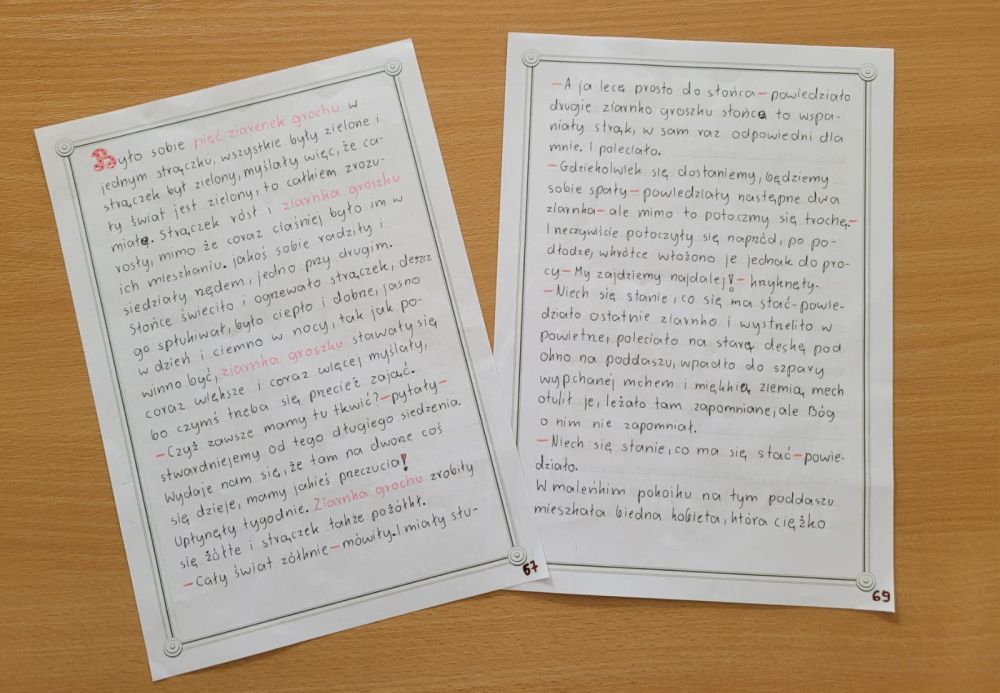 Było sobie pięć ziarenek grochu w
jednym strączku, wszystkie były zielone i
strączek był zielony, myślały więc, że ca-
ły świat jest zielony, to całkiem zrozu-
miałe. Strączek rósł i ziarnka groszku
rosły, mimo że coraz ciaśniej było im w
ich mieszkaniu. Jakoś sobie radziły i
siedziały rzędem, jedno przy drugim.
Słońce świeciło i ogrzewało strączek, deszcz
go spłukiwał, było ciepło i dobrze, jasno
w dzień i ciemno w nocy, tak jak po-
winno być, ziarnka groszku stawały się
coraz większe i coraz więcej myślały,
bo czymś trzeba się przecież zająć.
-Czyż zawsze mamy tu tkwić?-pytały-
stwardniejemy od tego długiego siedzenia.
Wydaje nam się, że tam na dworze coś
się dzieje, mamy jakieś przeczucia!
Upłynęły tygodnie. Ziarnka grochu zrobiły
się żółte i strączek także pożółkł.
-Cały świat żółknie-mówiły. I miały słu-
67
-A ja lecę prosto do słońca-powiedziało
drugie ziarnko groszku słońce to wspa-
niały strąk, w sam raz odpowiedni dla
mnie. I poleciało.
-Gdziekolwiek się dostaniemy, będziemy
sobie spały-powiedziały następne dwa
ziarnka-ale mimo to potoczmy się trochę.-
I rzeczywiście potoczyły się naprzód, po po-
dłodze, wkrótce włożono je jednak do pro-
cy-My zajdziemy najdalej!-krzyknęły.
-Niech się stanie, co się ma stać-powie-
działo ostatnie ziarnko i wystrzeliło w
powietrze, poleciało na starą deskę pod
okno na poddaszu, wpadło do szpary
wypchanej mchem i miękkią ziemią, mech
otulił je, leżało tam zapomniane, ale Bóg
o nim nie zapomniał.
-Niech się stanie, co ma się stać-powie-
działo.
W maleńkim pokoiku na tym poddaszu
mieszkała biedna kobieta, która ciężko
69